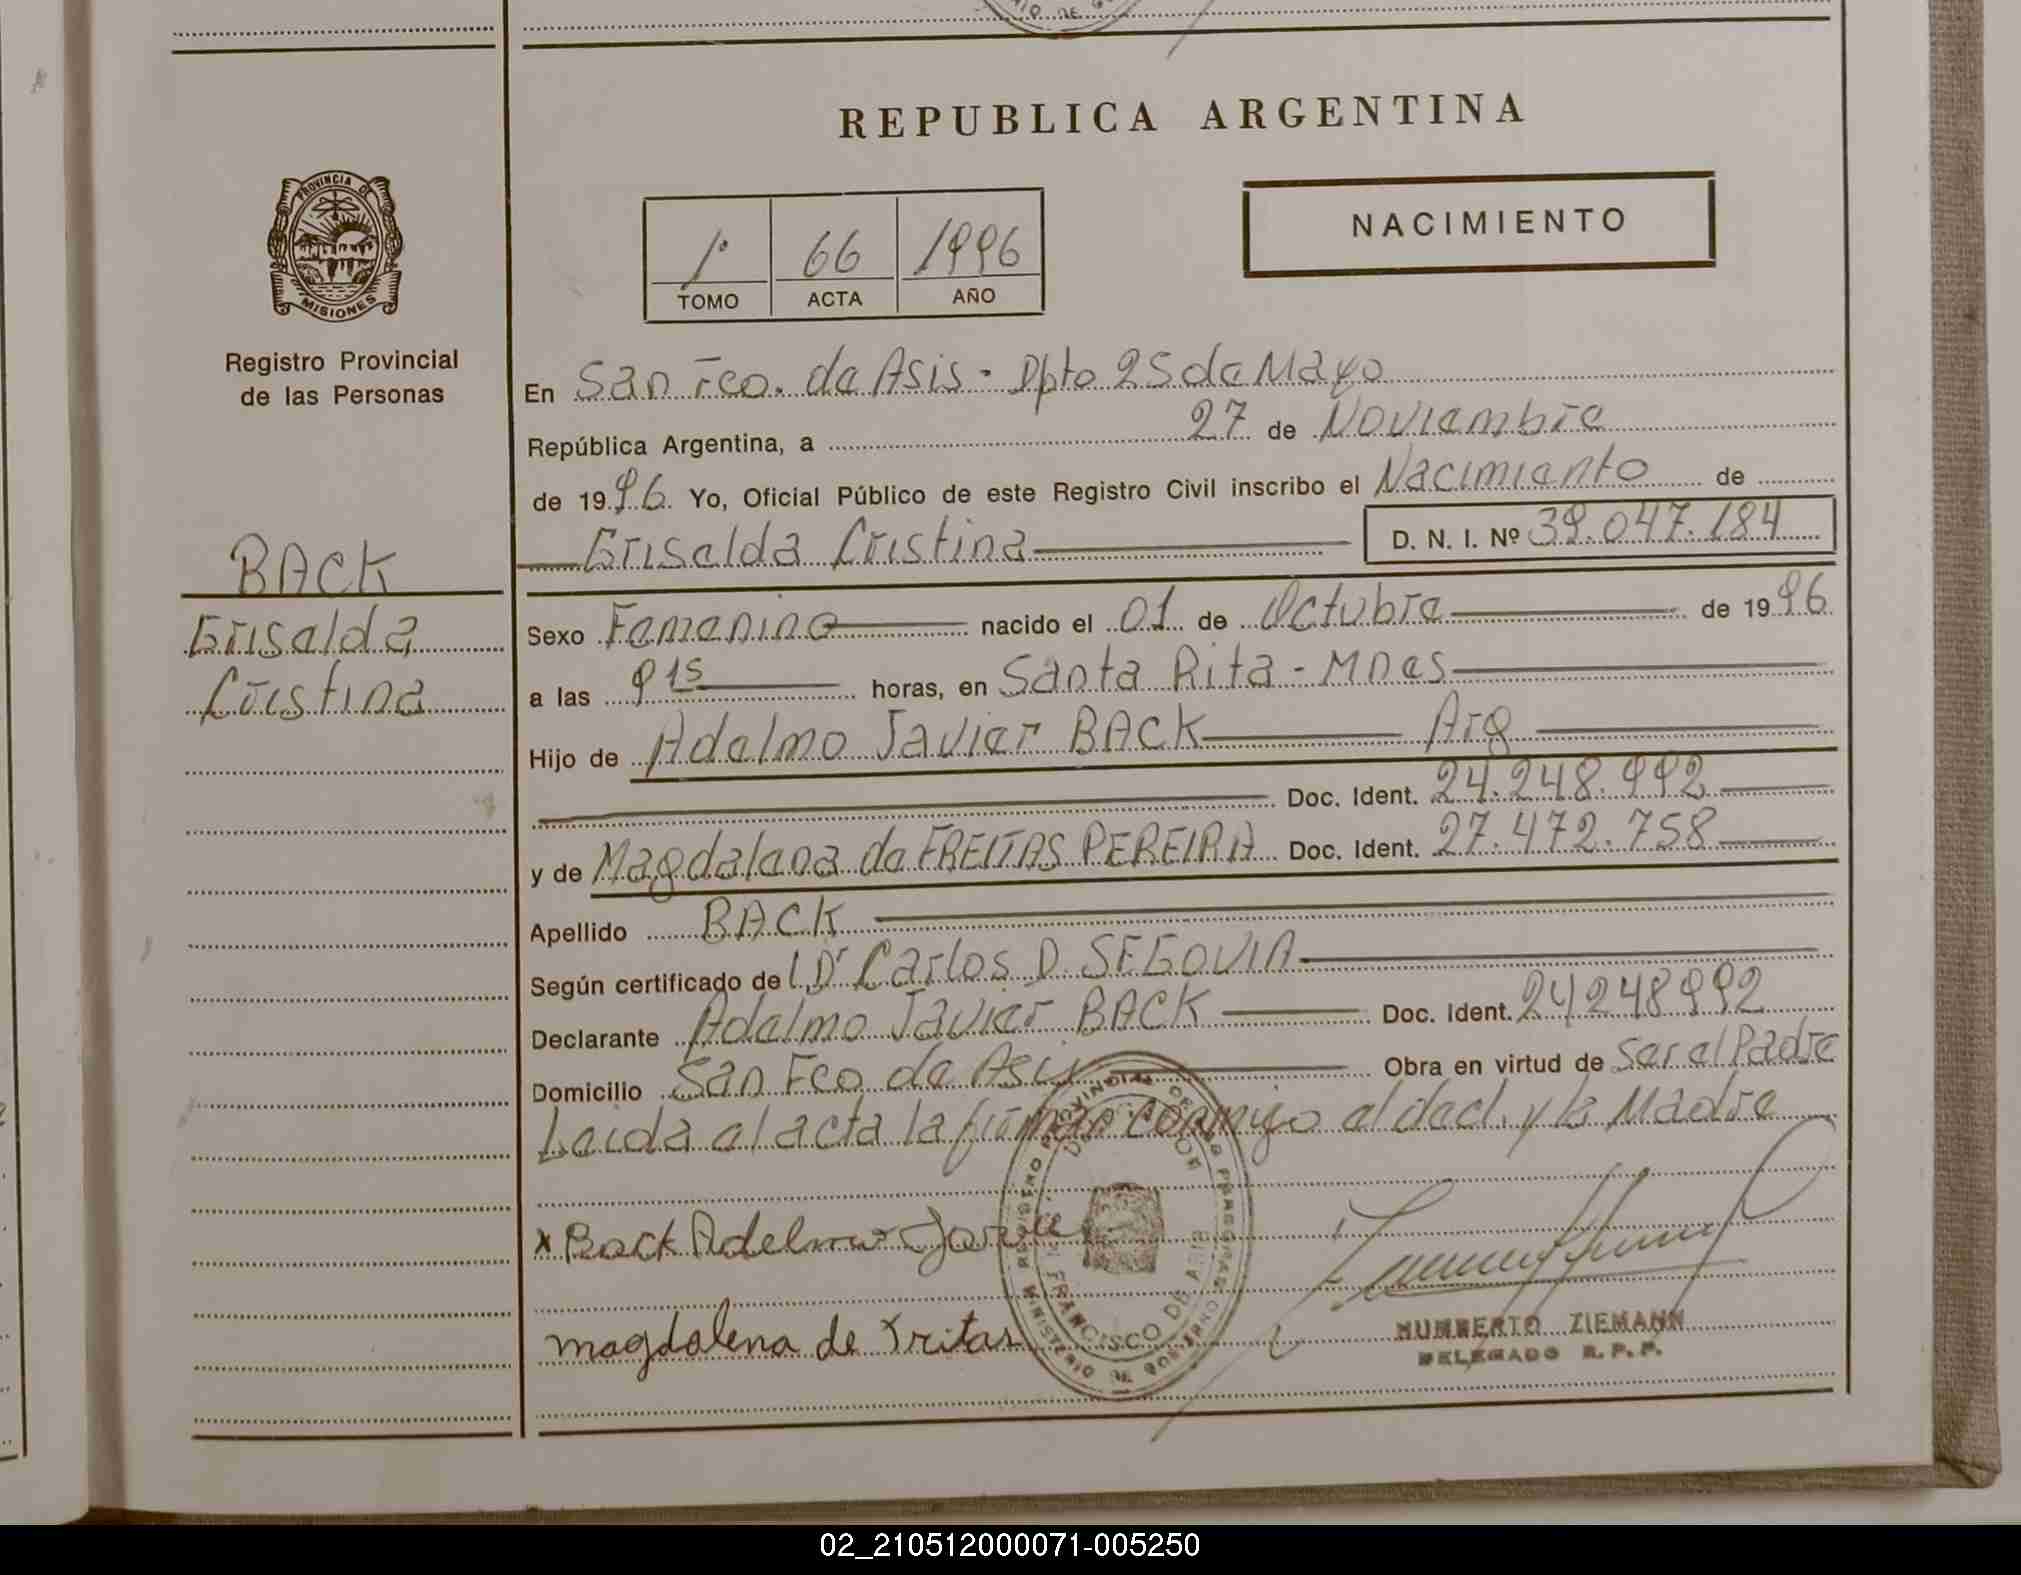 REPUBLICA ARGENTINA
NACIMIENTO
1º 66 1996
TOMO ACTA AÑO
PROVINCIA DE
MISIONES
Registro Provincial
de las Personas
BACK
Griselda
Cristina
En San Fco. de Asis - Dpto 25 de Mayo
República Argentina, a 27 de Noviembre
de 1996 Yo, Oficial Público de este Registro Civil inscribo el Nacimiento de
Griselda Cristina D. N. I. Nº 39.047.184
Sexo Femenino nacido el 01 de Octubre de 1996
a las 9 15 horas, en Santa Rita - Mnes
Hijo de Adelmo Javier BACK Arg
Doc. Ident. 24.248.992
y de Magdalena de FREITAS PEREIRA Doc. Ident. 27.472.758
Apellido BACK
Según certificado de Dr Carlos D. SEGOVIA
Declarante Adelmo Javier BACK Doc. Ident. 24248992
Domicilio San Fco de Asis Obra en virtud de Ser el Padre
Leida el acta la firman conmigo el decl. y la Madre
x Back Adelmo Javie
magdalena de Fritas
FRANCISCO DE ASIS
MINISTERIO DE GOBIERNO
HUMBERTO ZIEMANN
DELEGADO R. P. P.
02_210512000071-005250